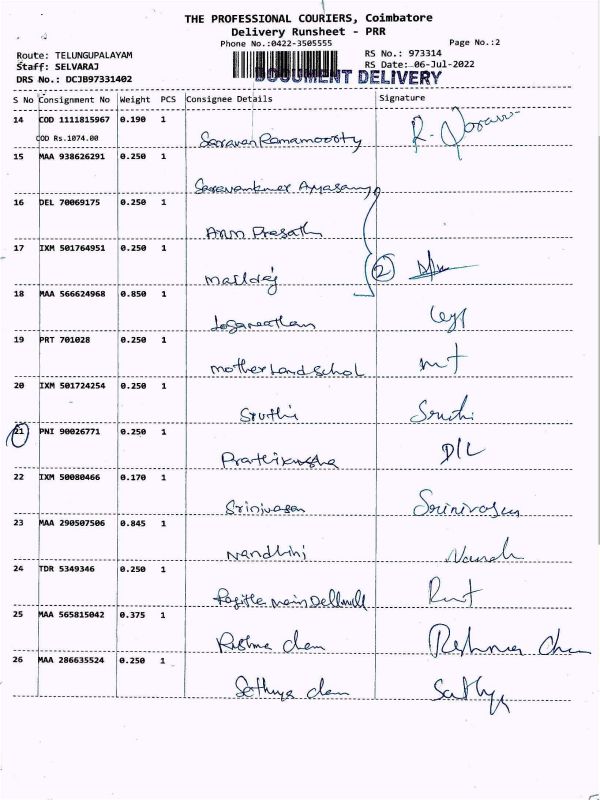 THE PROFESSIONAL COURIERS, Coimbatore
Delivery Runsheet - PRR
Phone No.:0422-3505555
Page No.:2
Route: TELUNGUPALAYAM
RS No.: 973314
Staff: SELVARAJ
RS Date: 06-Jul-2022
DRS No.: DCJB97331402
DOCUMENT DELIVERY
S No Consignment No Weight PCS Consignee Details Signature
14 COD 1111815967 0.190 1
COD Rs.1074.00
Saravan Ramamoorty R.
15 MAA 938626291 0.250 1
16 DEL 70069175 0.250 1
Arun Prasath
17 IXM 501764951 0.250 1
2
18 MAA 566624968 0.850 1
Loganathan
19 PRT 701028 0.250 1
motherland school mt
20 IXM 501724254 0.250 1
Sruthi Sruthi
21 PNI 90026771 0.250 1
D/L
22 IXM 50080466 0.170 1
Srinivasan Srinivasan
23 MAA 290507506 0.845 1
Nandhini
24 TDR 5349346 0.250 1
25 MAA 565815042 0.375 1
26 MAA 286635524 0.250 1
Sathya